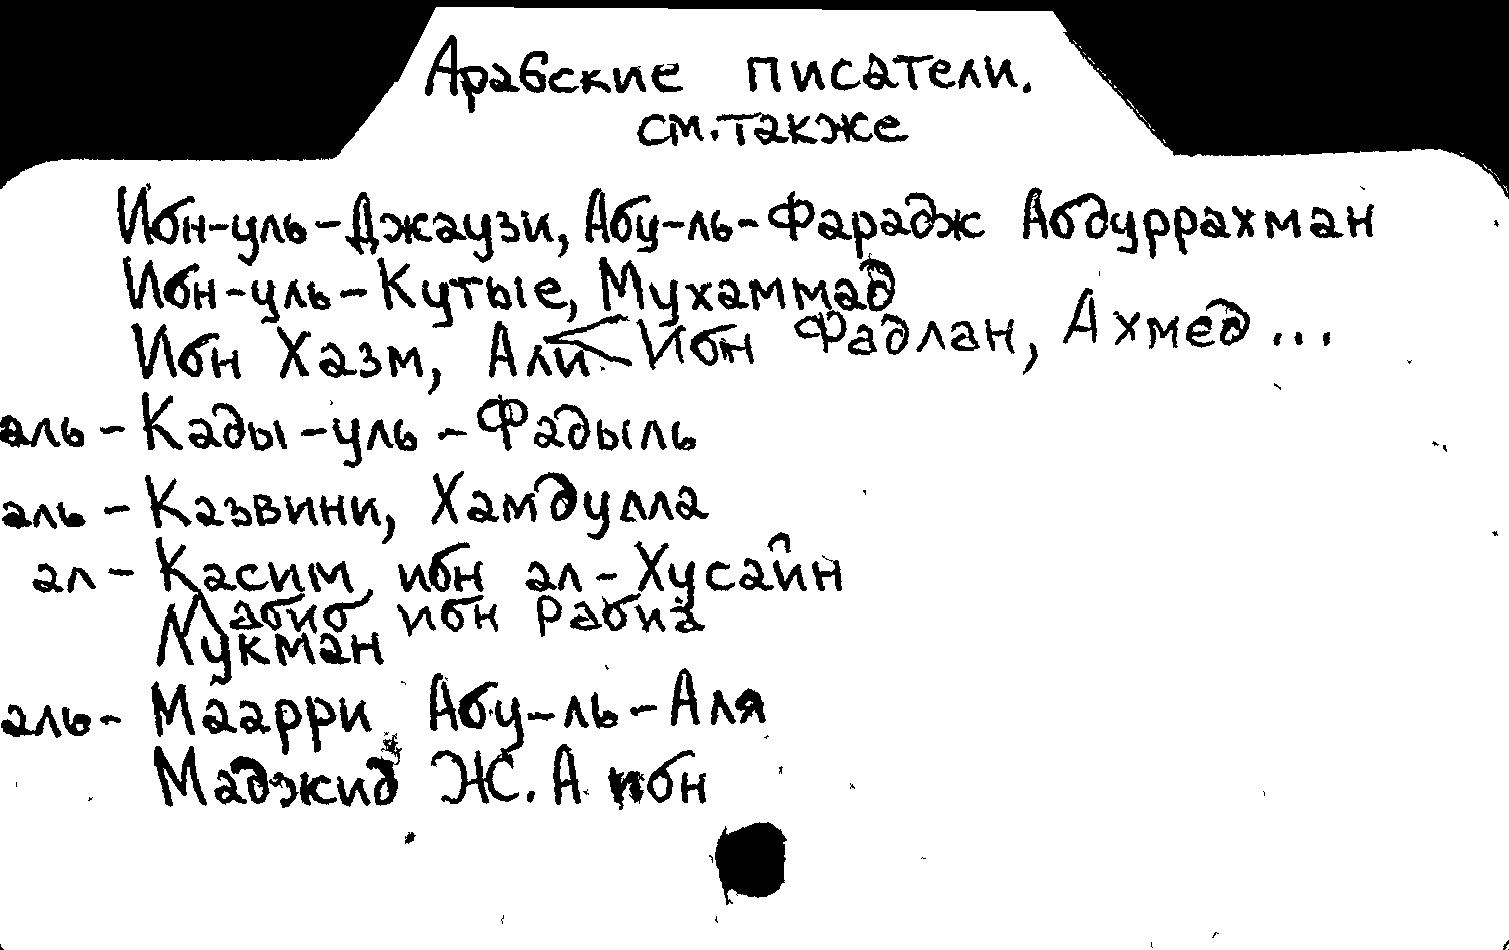 Арабские писатели.
см. также
Ибн-уль-Джаузи, Абу-ль-Фарадж Абдуррахман
Ибн-уль-Кутые, Мухаммад
Ибн Хазм, Али Ибн Фадлан, Ахмед...
аль-Кады-уль-Фадыль
аль-Казвини, Хамдулла
ал-Касим, ибн ал-Хусайн
Лабиб ибн Рабиа
Лукман
аль-Маарри Абу-ль-Аля
Маджид Ж.А ибн